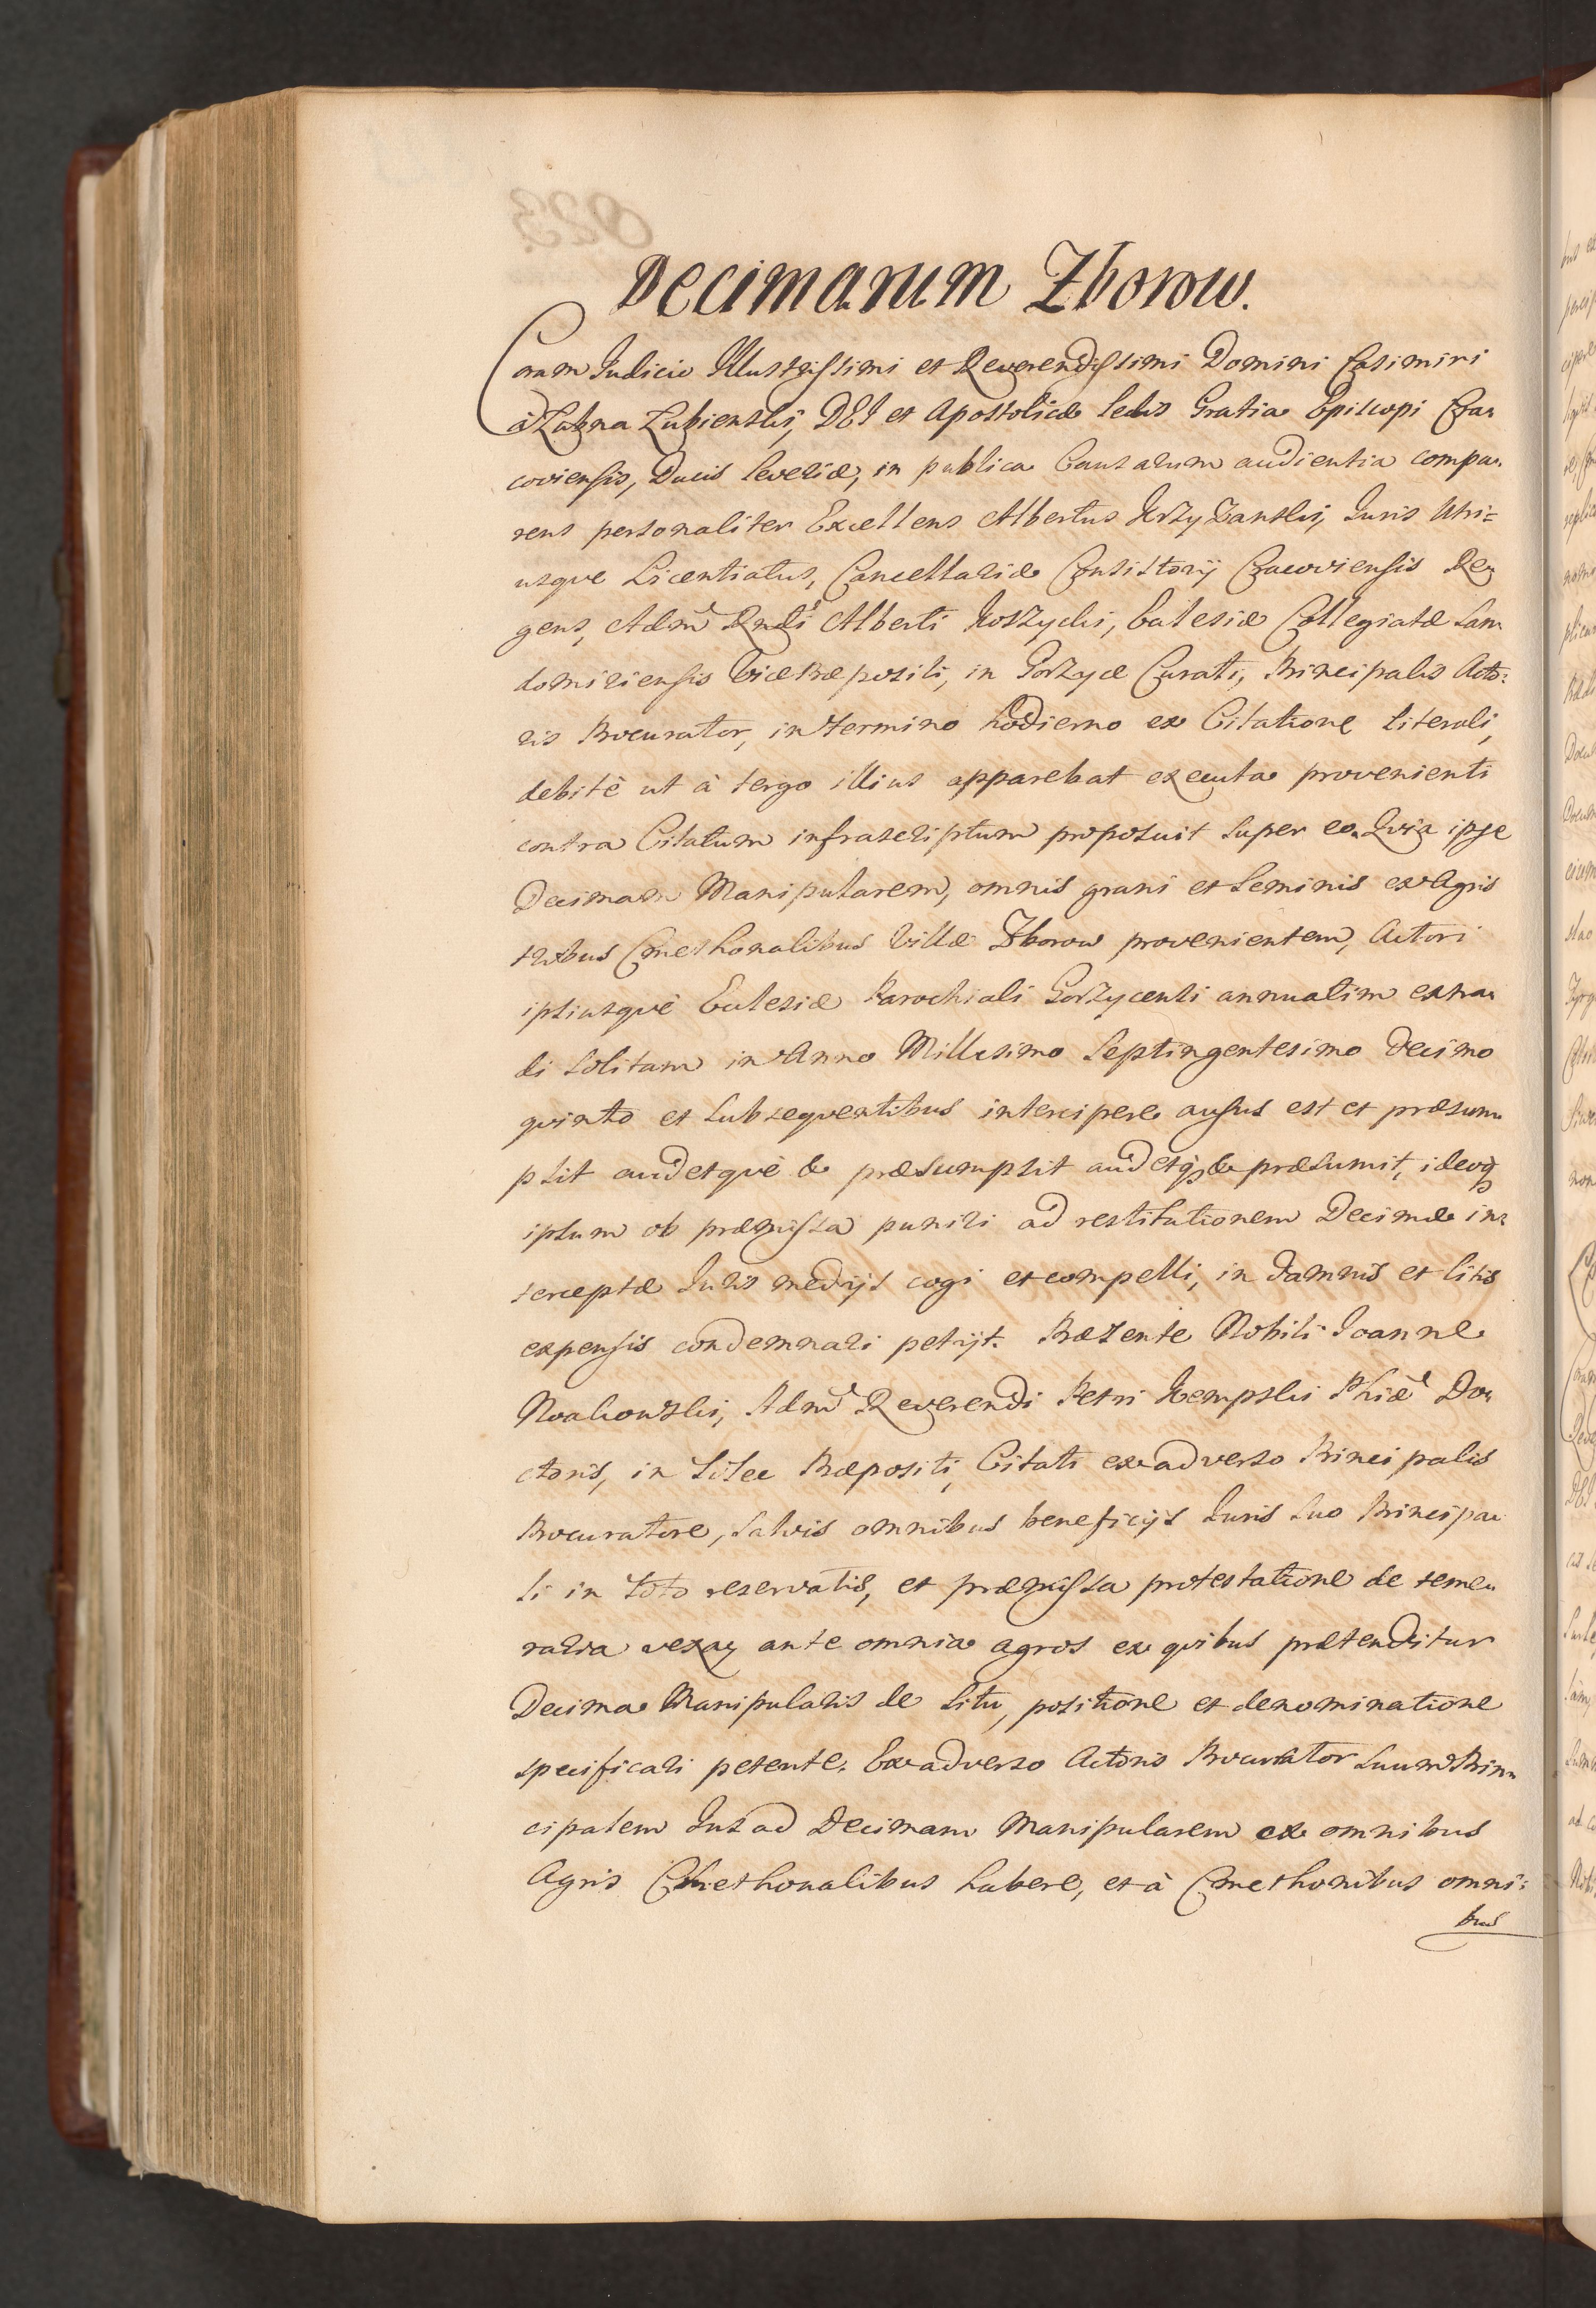 Decimarum Zborow.
Coram Judicio Illustrissimi et Reverendissimi Domini Casimiri
à Łubna Łubienski, DEI et Apostolicæ Sedis Gratia Episcopi Cra-
coviensis, Ducis Severiæ, in publica Causarum audientia compa-
rens personaliter Excellens Albertus Krzyzanski, Juris Utri=
usque Licentiatus, Cancellariæ Consistorij Cracoviensis Re-
gens, Adm Rndi Alberti Koszycki, Ecclesiæ Collegiatæ San-
domiriensis Vicepræpositi, in Gorzyce Curati, Principalis Acto:
ris Procurator, in termino hodierno ex Citatione literali,
debitè ut à tergo illius apparebat executa provenienti
contra Citatum infrascriptum proposuit super eo. Quia ipse
Decimam Manipularem, omnis grani et seminis ex Agris
Cmethonalibus Villæ Zborow provenientem, Actori
ipsiusquè Ecclesiæ Parochiali Gorzycensi annuatim extra-
di solitam in Anno Millesimo Septingentesimo Decimo
quinto et subsequentibus intercipere ausus est et præsum-
psit audetquè & præsumpsit audetq; & præsumit, ideoq;
ipsum ob præmissa puniri ad restitutionem Decimæ in-
terceptæ Juris medijs cogi et compelli, in damnis et litis
expensis condemnari petijt. Præsente Nobili Joanne
Nwakowski, Adm Reverendi Petri Kempski Phiæ Do-
ctoris, in Præpositi, Citati ex adverso Principalis
Procuratore, salvis omnibus beneficijs Juris suo Principa-
li in toto reservatis, et præmissa protestatione de teme-
raria vexa- ante omnia agros ex quibus prætenditur
Decima Manipularis de situ, positione et denominatione
specificari petente. Ex adverso Actoris Procurator suum Prin-
cipalem Jus ad Decimam Manipularem ex omnibus
Agris Cmethonalibus habere, et à Cmethonibus omni:
bus